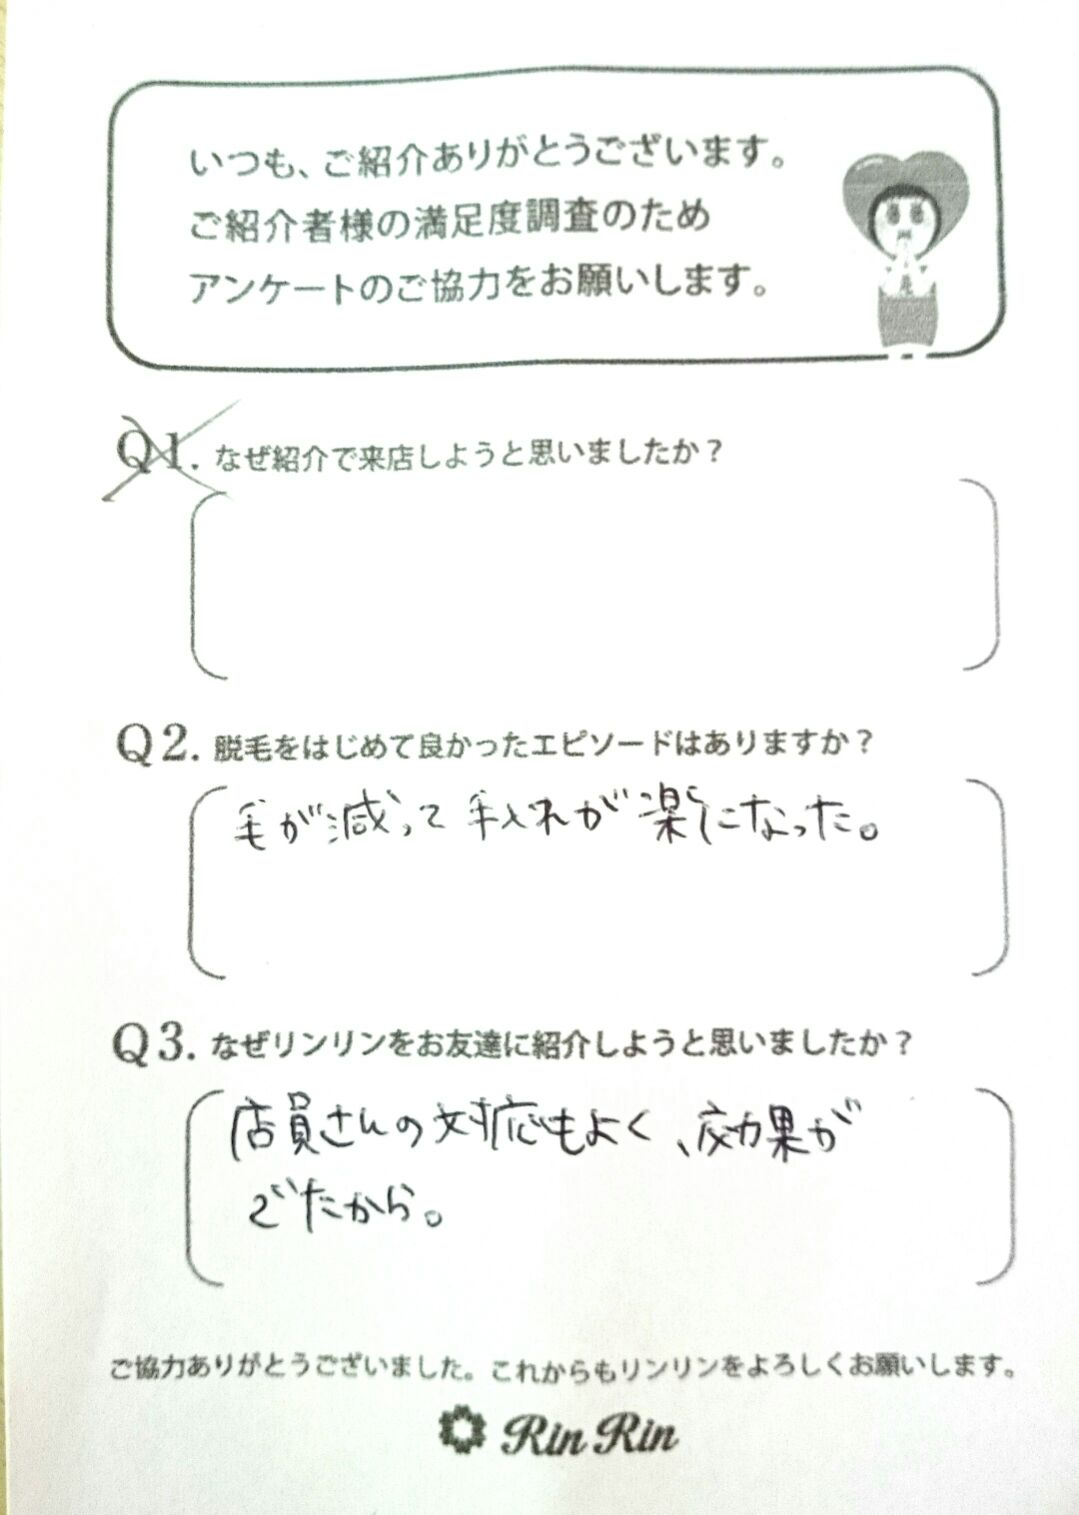 いつも、ご紹介ありがとうございます。
ご紹介者様の満足度調査のため
アンケートのご協力をお願いします。
Q1. なぜ紹介で来店しようと思いましたか？
Q2. 脱毛をはじめて良かったエピソードはありますか？
毛が減って手入れが楽になった。
Q3. なぜリンリンをお友達に紹介しようと思いましたか？
店員さんの対応もよく、効果が
でたから。
ご協力ありがとうございました。これからもリンリンをよろしくお願いします。
Rin Rin